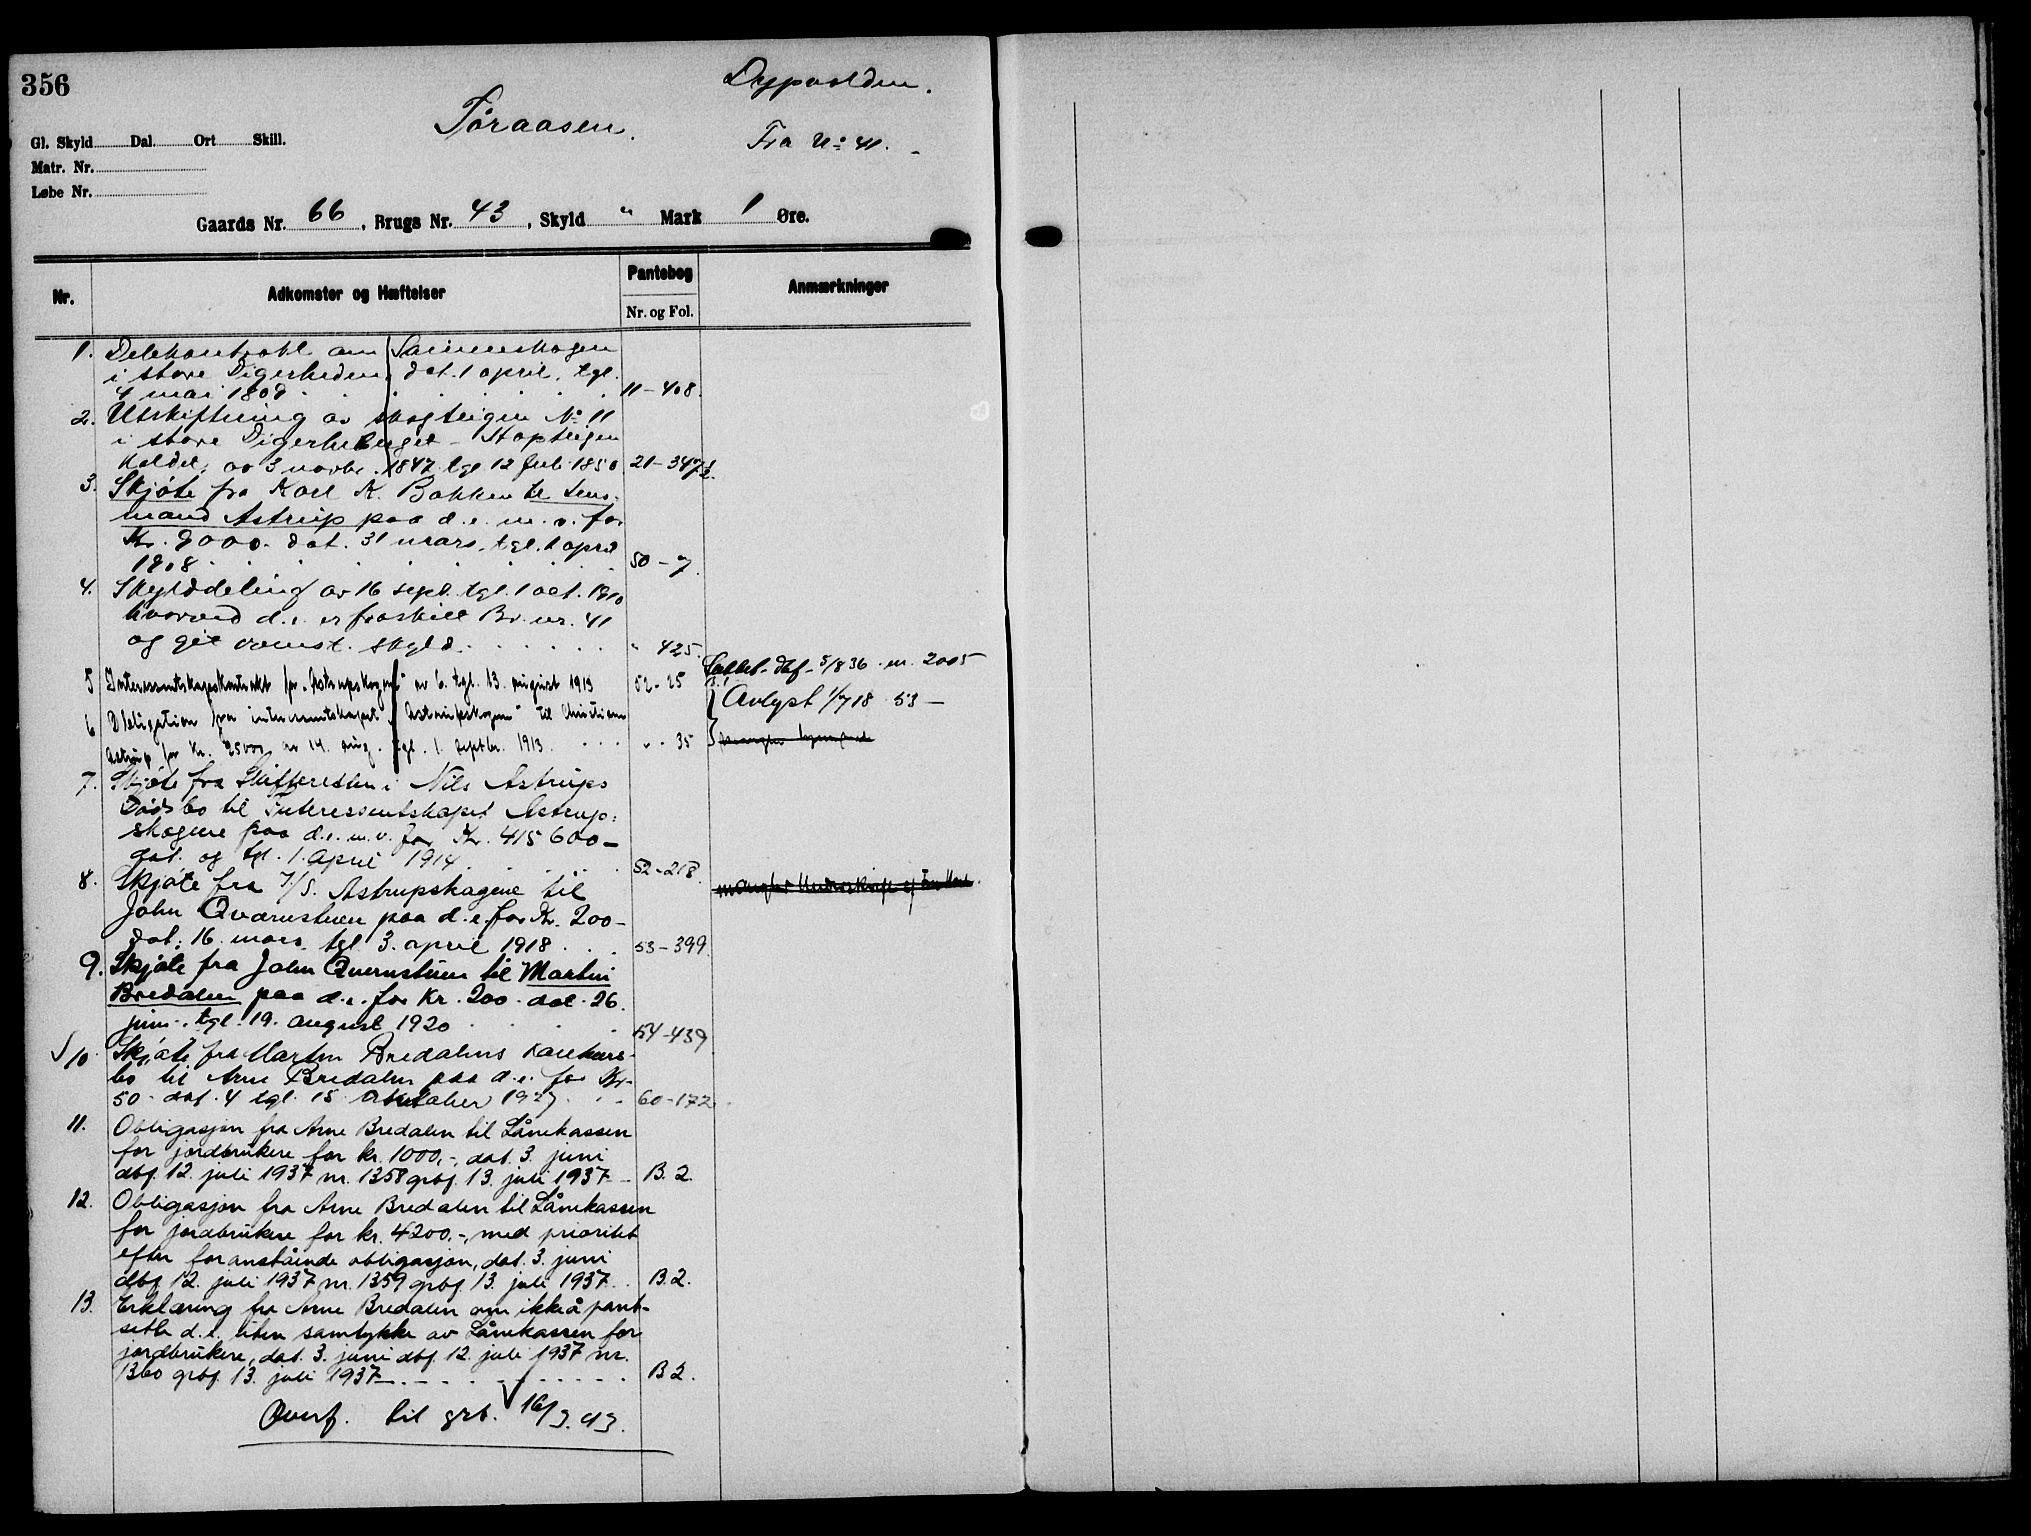 356
Drypaalden.
Føraasen.
Fra No 41. -
Gl. Skyld Dal. Ort Skill.
Matr. Nr.
Løbe Nr.
Gaards Nr. 66, Brugs Nr. 43, Skyld " Mark 1 Øre.
Nr. Adkomster og Hæftelser Pantebog Nr. og Fol. Anmærkninger
1. Delekontrakt om Sameieskogen
i store Digerheden, dat. 1 april, tgl.
4 mai 1809 11-408.
2. Utskiftning av skogteigen No 11
i store Digerheberget - Stopteigen
kaldet; av 3 novbr. 1847 tgl 12 feb. 1850 21-347
3. Skjøte fra Karl K. Bakken til lens-
mand Astrup paa d.e. m.v. for
Kr. 9000. dat. 31 mars, tgl. 1 april
1908 50-7.
4. Skylddeling av 16 sept. tgl. 1 oct. 1910
hvorved d.e. er fraskilt Br. nr. 41
og git nævnt. skyld. " 425.
Slettet dbf. 5/8 36 nr. 2005
5 Interessentskapskontrakt for "Astrupskogene" av 6. tgl. 13. august 1913 52-25
Avlyst 1/7 18 53 -
6 Obligation fra interessentskapet "Astrupskogene" til Christian
Astrup for Kr. 25000 av 14. aug. tgl. 1. septbr. 1913. " - 35
7. Skjøte fra Skifteretten i Nils Astrups
Dødsbo til Interessentskapet Astrup-
skogene paa d.e. m.v. for Kr. 415 600 -
dat. og tgl. 1. april 1914 52-218
8. Skjøte fra I/S. Astrupskogene til
mangler Underskrift af
John Qvarnstuen paa d.e. for Kr. 200 -
dat. 16. mars. tgl 3. april 1918 53-399
9. Skjøte fra John Qvernstuen til Martin
Bredalen paa d.e. for Kr. 200. dat. 26
juni. tgl. 19. august 1920 54-439
10. Skjøte fra Martin Bredalens konkurs-
bo til Arne Bredalen paa d.e. for Kr
50. dat. 4 tgl. 15 oktober 1927 60-172
11. Obligasjon fra Arne Bredalen til Lånekassen
for jordbrukere for kr. 1000,-, dat. 3. juni
dbf. 12. juli 1937 nr. 1358 grbf. 13. juli 1937 B. 2.
12. Obligasjon fra Arne Bredalen til Lånekassen
for jordbrukere for kr. 4200,-, med prioritet
efter foranstående obligasjon, dat. 3. juni
dbf. 12. juli 1937 nr. 1359 grbf. 13. juli 1937 B. 2.
13. Erklæring fra Arne Bredalen om ikke å pant-
sette d.e. uten samtykke av Lånekassen for
jordbrukere, dat. 3. juni dbf. 12. juli 1937 nr.
1360 grbf. 13. juli 1937 B 2.
Overf. til grb. 16/3.43.